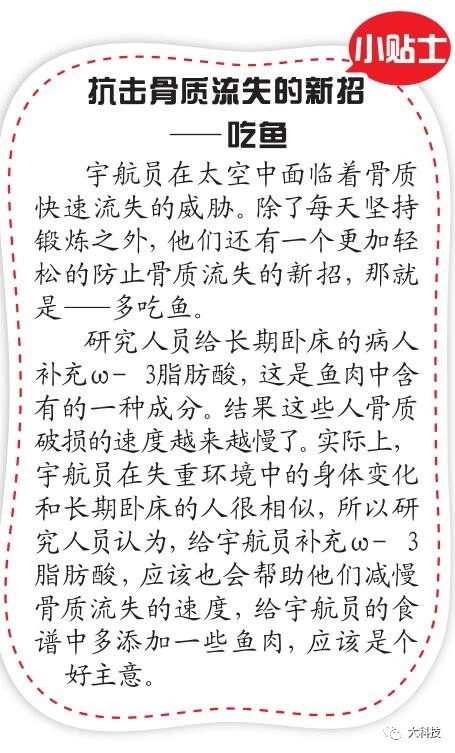 小贴士
抗击骨质流失的新招
——吃鱼
宇航员在太空中面临着骨质
快速流失的威胁。除了每天坚持
锻炼之外，他们还有一个更加轻
松的防止骨质流失的新招，那就
是——多吃鱼。
研究人员给长期卧床的病人
补充ω- 3脂肪酸，这是鱼肉中含
有的一种成分。结果这些人骨质
破损的速度越来越慢了。实际上，
宇航员在失重环境中的身体变化
和长期卧床的人很相似，所以研
究人员认为，给宇航员补充ω- 3
脂肪酸，应该也会帮助他们减慢
骨质流失的速度，给宇航员的食
谱中多添加一些鱼肉，应该是个
好主意。
大科技